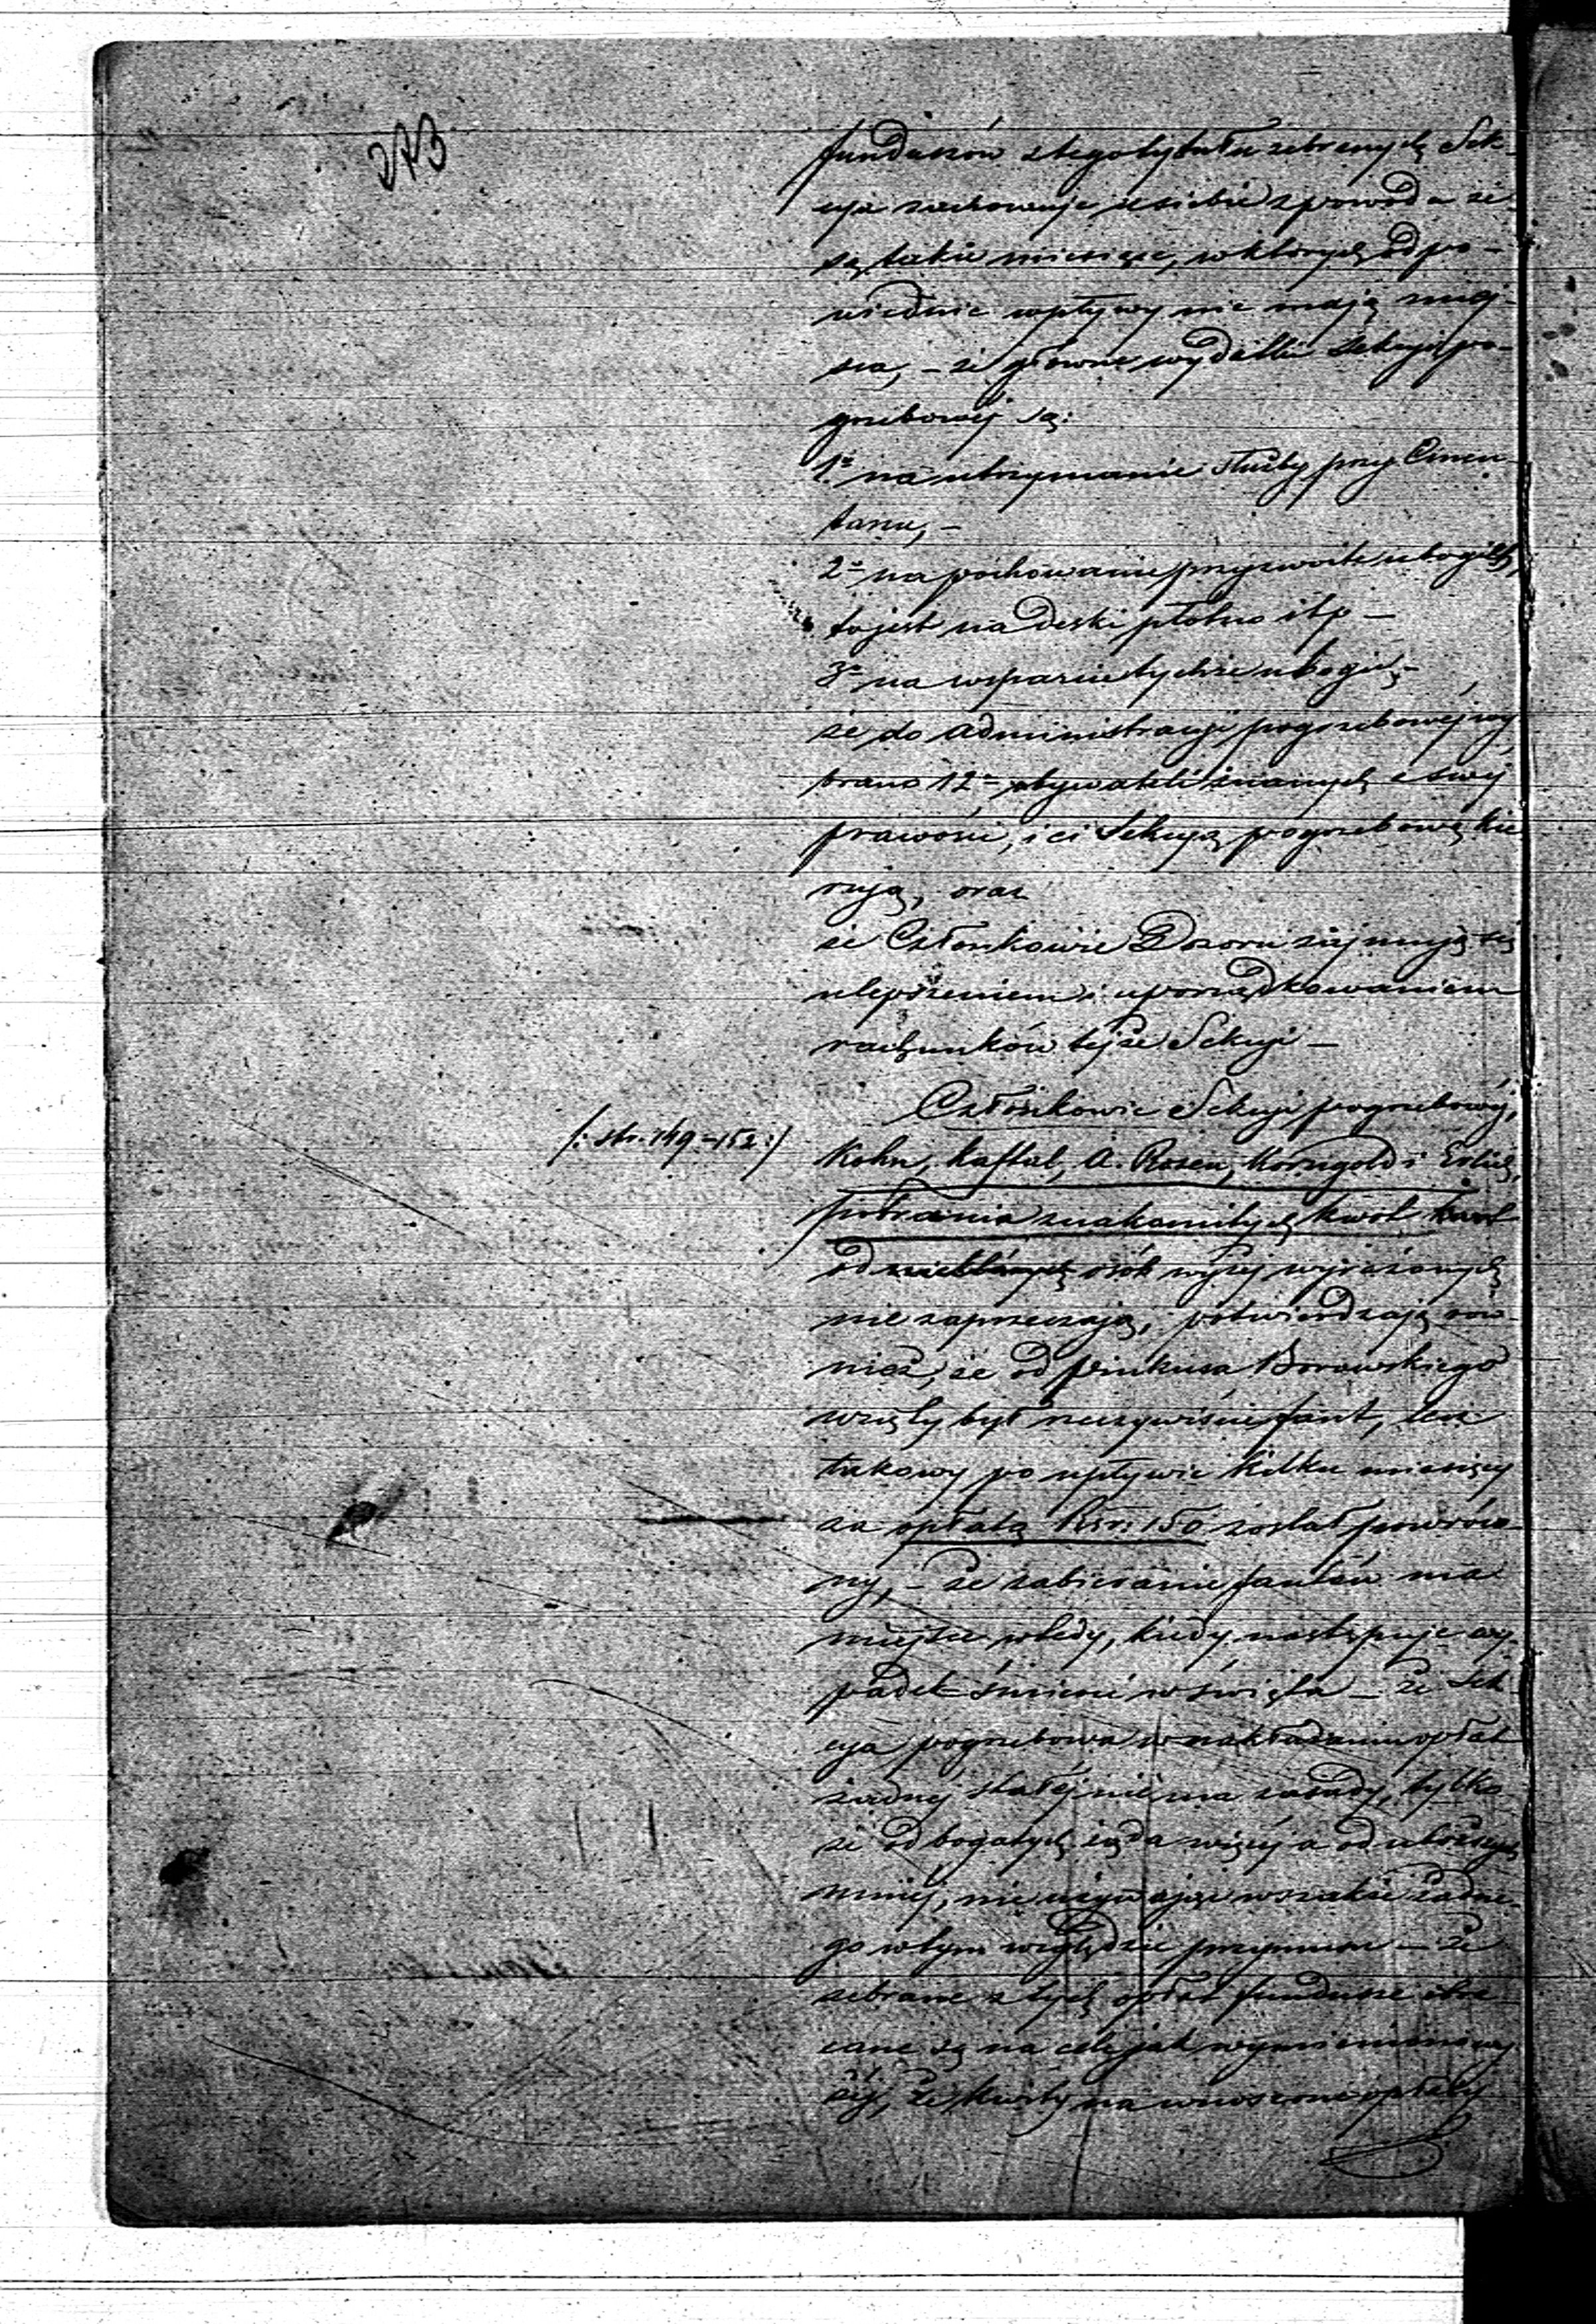 273
funduszów z tego tytułu zebranych Sek-
cya zachowuje u siebie z powodu że
są takie miesiące, w których odpo-
wiednie wpływy nie mają miej-
sca, – że główne wydatki Sekcyi po-
grzebowej są:
1º na utrzymanie służby przy Cmen-
tarzu, –
2º na pochowanie przyzwoite ubogich,
to jest na deski płótno itp –
3º na wsparcie tychże ubogich –
że do administracyi pogrzebowej wy
brano 12º obywateli znanych z swej
prawości, i ci Sekcyą pogrzebową kie
rują, oraz
że Członkowie Dozoru zajmują się
ulepszeniem i uporządkowaniem
rachunków tejże Sekcyi –
Członkowie Sekcyi pogrzebowej,
/: str. 149–152 :/
Kohn, Kaftal, A. Rosen, Korngold i Erlich,
pobrania znakomitych kwot
od osób wyżej wyrażonych
nie zaprzeczają, potwierdzają rów-
nież, że od Pinkusa Borowskiego
wzięty był rzeczywiście fant, lecz
takowy po upływie kilku miesięcy
za opłatą Rsr: 150 został powróco-
ny, – że zabieranie fantów ma
miejsce wtedy, kiedy następuje wy-
padek śmierci w święta – że Sek
cya pogrzebowa w nakładaniu opłat
żadnej stałej nie ma zasady, tylko
że od bogatych żąda więcej a od uboższych
mniej, nie używając wszakże żadne-
go w tym względzie przymusu – że
zebrane z tych opłat fundusze obra-
cane są na cele jak wymieniono wy
żej, że kwity na wnoszone opłaty